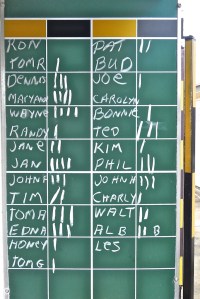 RON PAT
TOMR BUD
DENNIS JOE
MARYANN CAROLYN
WAYNE BONNIE
RANDY TED
JANE KIM
JAN PHIL
JOHNA JOHNH
TIM CHARLY
TOMA WALT
EDNA ALB B
HONEY LES
TOMG